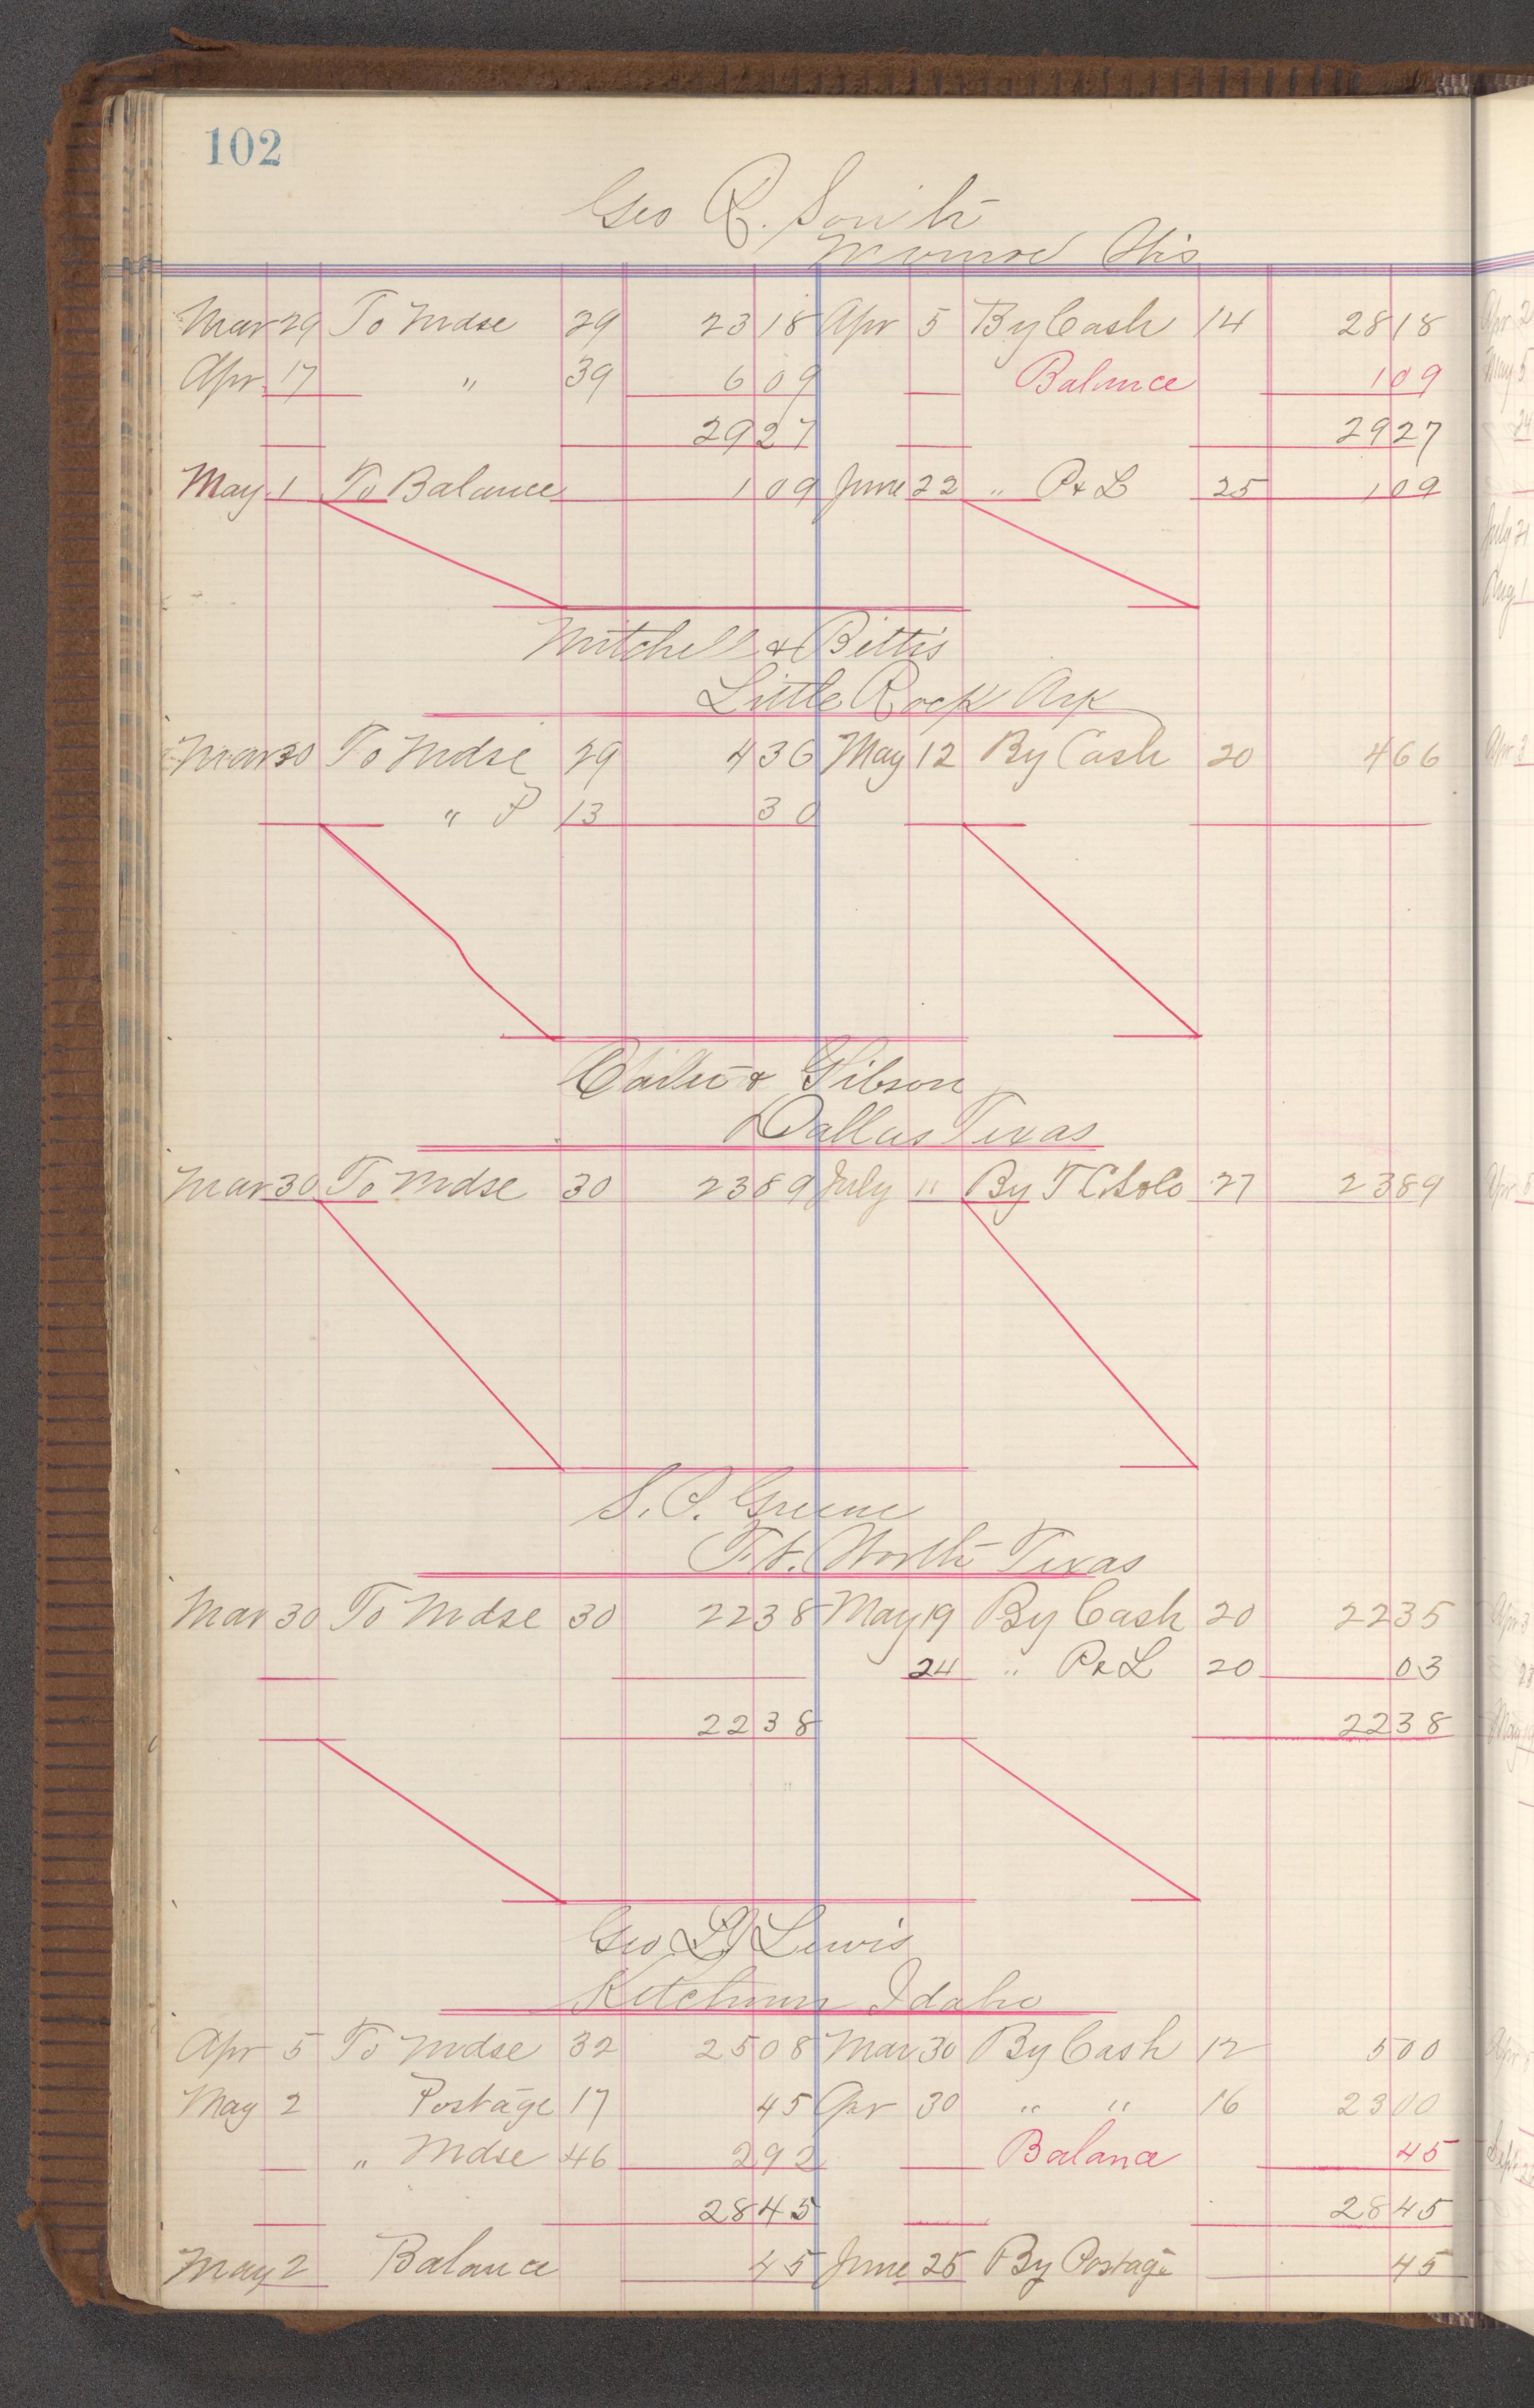 102
Geo R. Smith
Monroe
Mar 29 To Mdse 29 23 18 Apr 5 By Cash 14 28 18
Apr 17 " 39 6 09 Balance 1 09
29 27 29 27
May 1 To Balance 1 09 June 22 " P & L 25 1 09
Mitchell & Bettis
Little Rock Ark
Mar 30 To Mdse 29 4 36 May 12 By Cash 20 4 66
" P 13 30
& Gibson
Dallas Texas
Mar 30 To Mdse 30 23 89 July 11 By T C 27 23 89
S. P. Greene
Ft. Worth Texas
Mar 30 To Mdse 30 22 38 May 19 By Cash 20 22 35
24 " P & L 20 03
22 38 22 38
Geo Lewis
Ketchum Idaho
Apr 5 To Mdse 32 25 08 Mar 30 By Cash 12 5 00
May 2 Postage 17 45 Apr 30 " " 16 23 00
" Mdse 46 2 92 Balance 45
28 45 28 45
May 2 Balance 45 June 25 By Postage 45